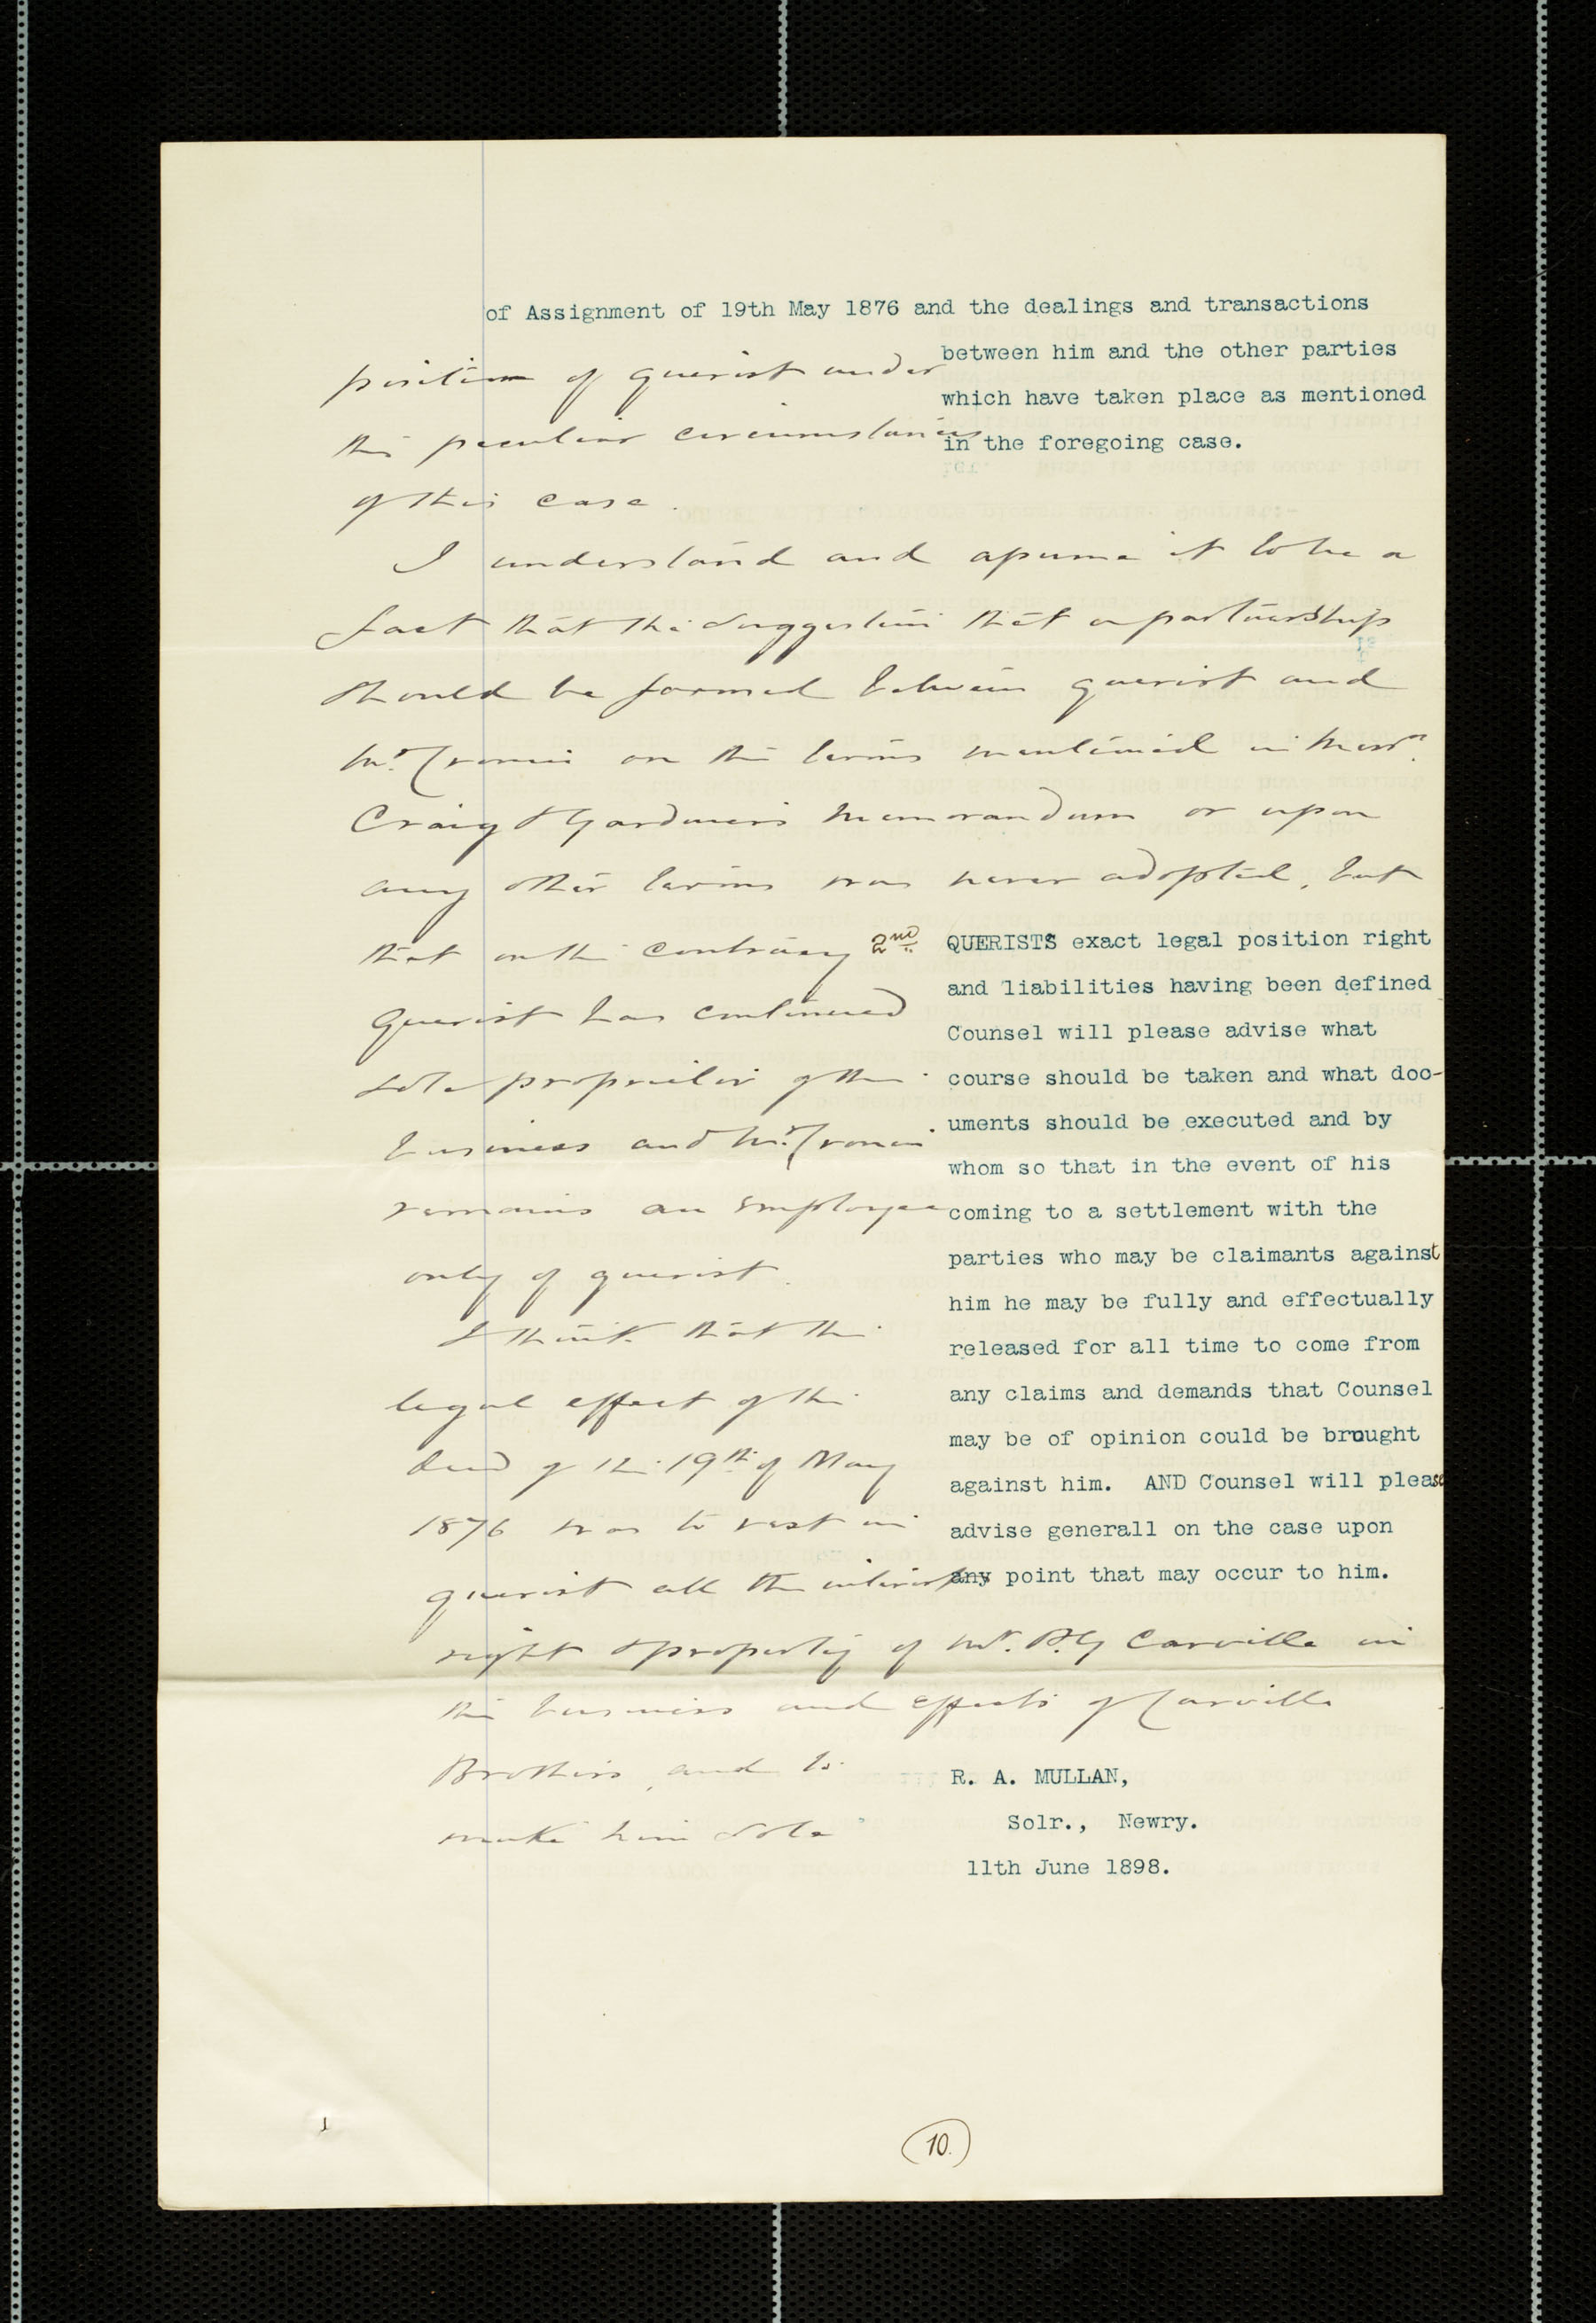 of Assignment of 19th May 1876 and the dealings and transactions
between him and the other parties
which have taken place as mentioned
in the foregoing case.
position of querist under
the peculiar circumstances
of this case.
I understand and assume it to be a
fact that the suggestion that a partnership
should be formed between querist and
Mr. Cronin on the terms mentioned in Messrs.
Craig & Gardner's memorandum or upon
any other terms was never adopted, but
that on the contrary
querist has continued
sole proprietor of the
business and Mr. Cronin
remains an employee
only of querist.
I think that the
legal effect of the
deed of the 19th of May
1876 was to vest in
querist all the interest
right & property of Mr. P.G Carville in
the business and effects of Carville
Brothers, and to
make him sole
2nd QUERISTS exact legal position right
and liabilities having been defined
Counsel will please advise what
course should be taken and what doc-
uments should be executed and by
whom so that in the event of his
coming to a settlement with the
parties who may be claimants against
him he may be fully and effectually
released for all time to come from
any claims and demands that Counsel
may be of opinion could be brought
against him. AND Counsel will please
advise generall on the case upon
any point that may occur to him.
R. A. MULLAN,
Solr., Newry.
11th June 1898.
10.